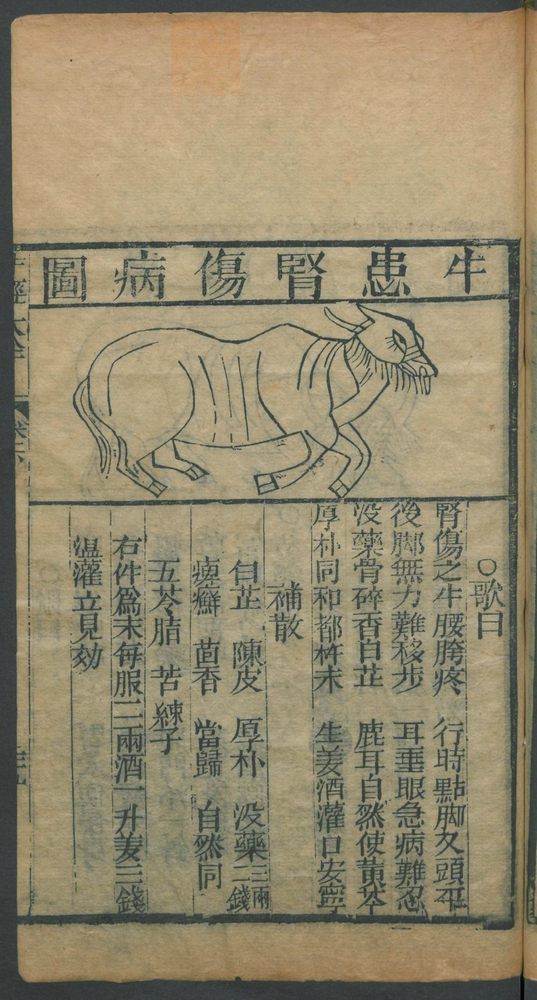 牛患腎傷病圖
○歌曰
腎傷之牛腰胯疼 行時點脚又頭平
後脚無力難移步 耳垂眼急病難忍
沒藥骨碎香白芷 鹿耳自然使黄芩
厚朴同和都杵末 生姜酒灌口安寧
補散
白芷 陳皮 厚朴 沒藥二錢三兩
茴香 當歸 自然同
五苓脂 苦練子
右件爲末每服二兩酒一升姜三錢
温灌立見効
牛經大全 卷下